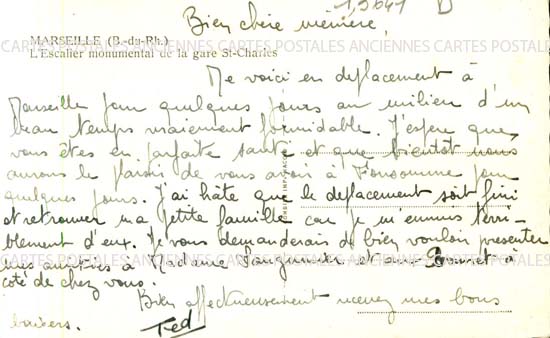 1,5641 D
Bien chère mémère,
MARSEILLE (B.-du-Rh.)
CARTES POSTALES ANCIENNES CARTES POSTALES ANCIENNES CARTES POSTALES
L'Escalier monumental de la gare St-Charles
Me voici en deplacement à
Marseille pour quelques jours au milieu d'un
beau temps vraiement formidable. J'espère que
vous êtes en parfaite santé et que bientôt nous
aurons le plaisir de vous avoir à Fonsomme pour
quelques jours. J'ai hâte que le deplacement soit fini
et retrouver ma petite famille car je m'ennuis terri-
blement d'eux. Je vous demanderais de bien vouloir presenter
mes amitiés à Madame et aux à
côté de chez vous.
Bien affectueusement recevez mes bons
baisers. Ted